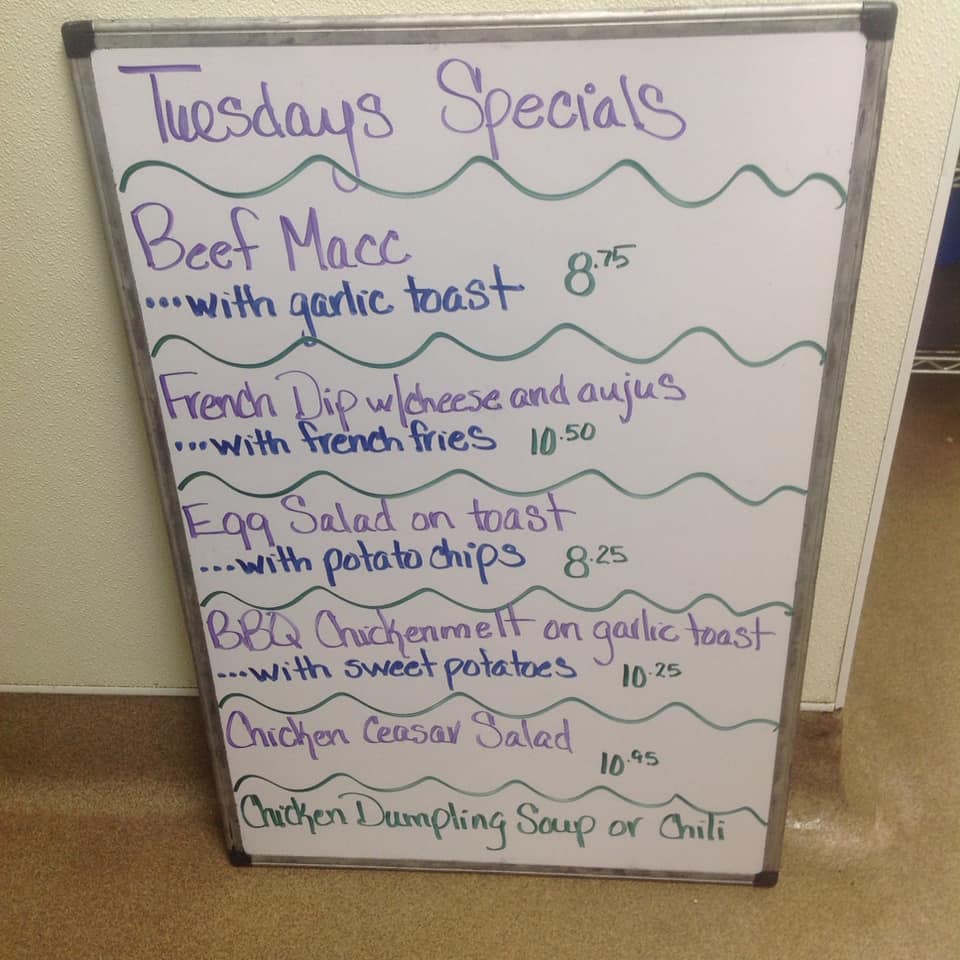 Tuesdays Specials
Beef Macc
...with garlic toast 8.75
French Dip w/cheese and aujus
...with french fries 10.50
Egg Salad on toast
...with potato chips 8.25
BBQ Chickenmelt on garlic toast
...with sweet potatoes 10.25
Chicken Ceasar Salad
10.95
Chicken Dumpling Soup or Chili